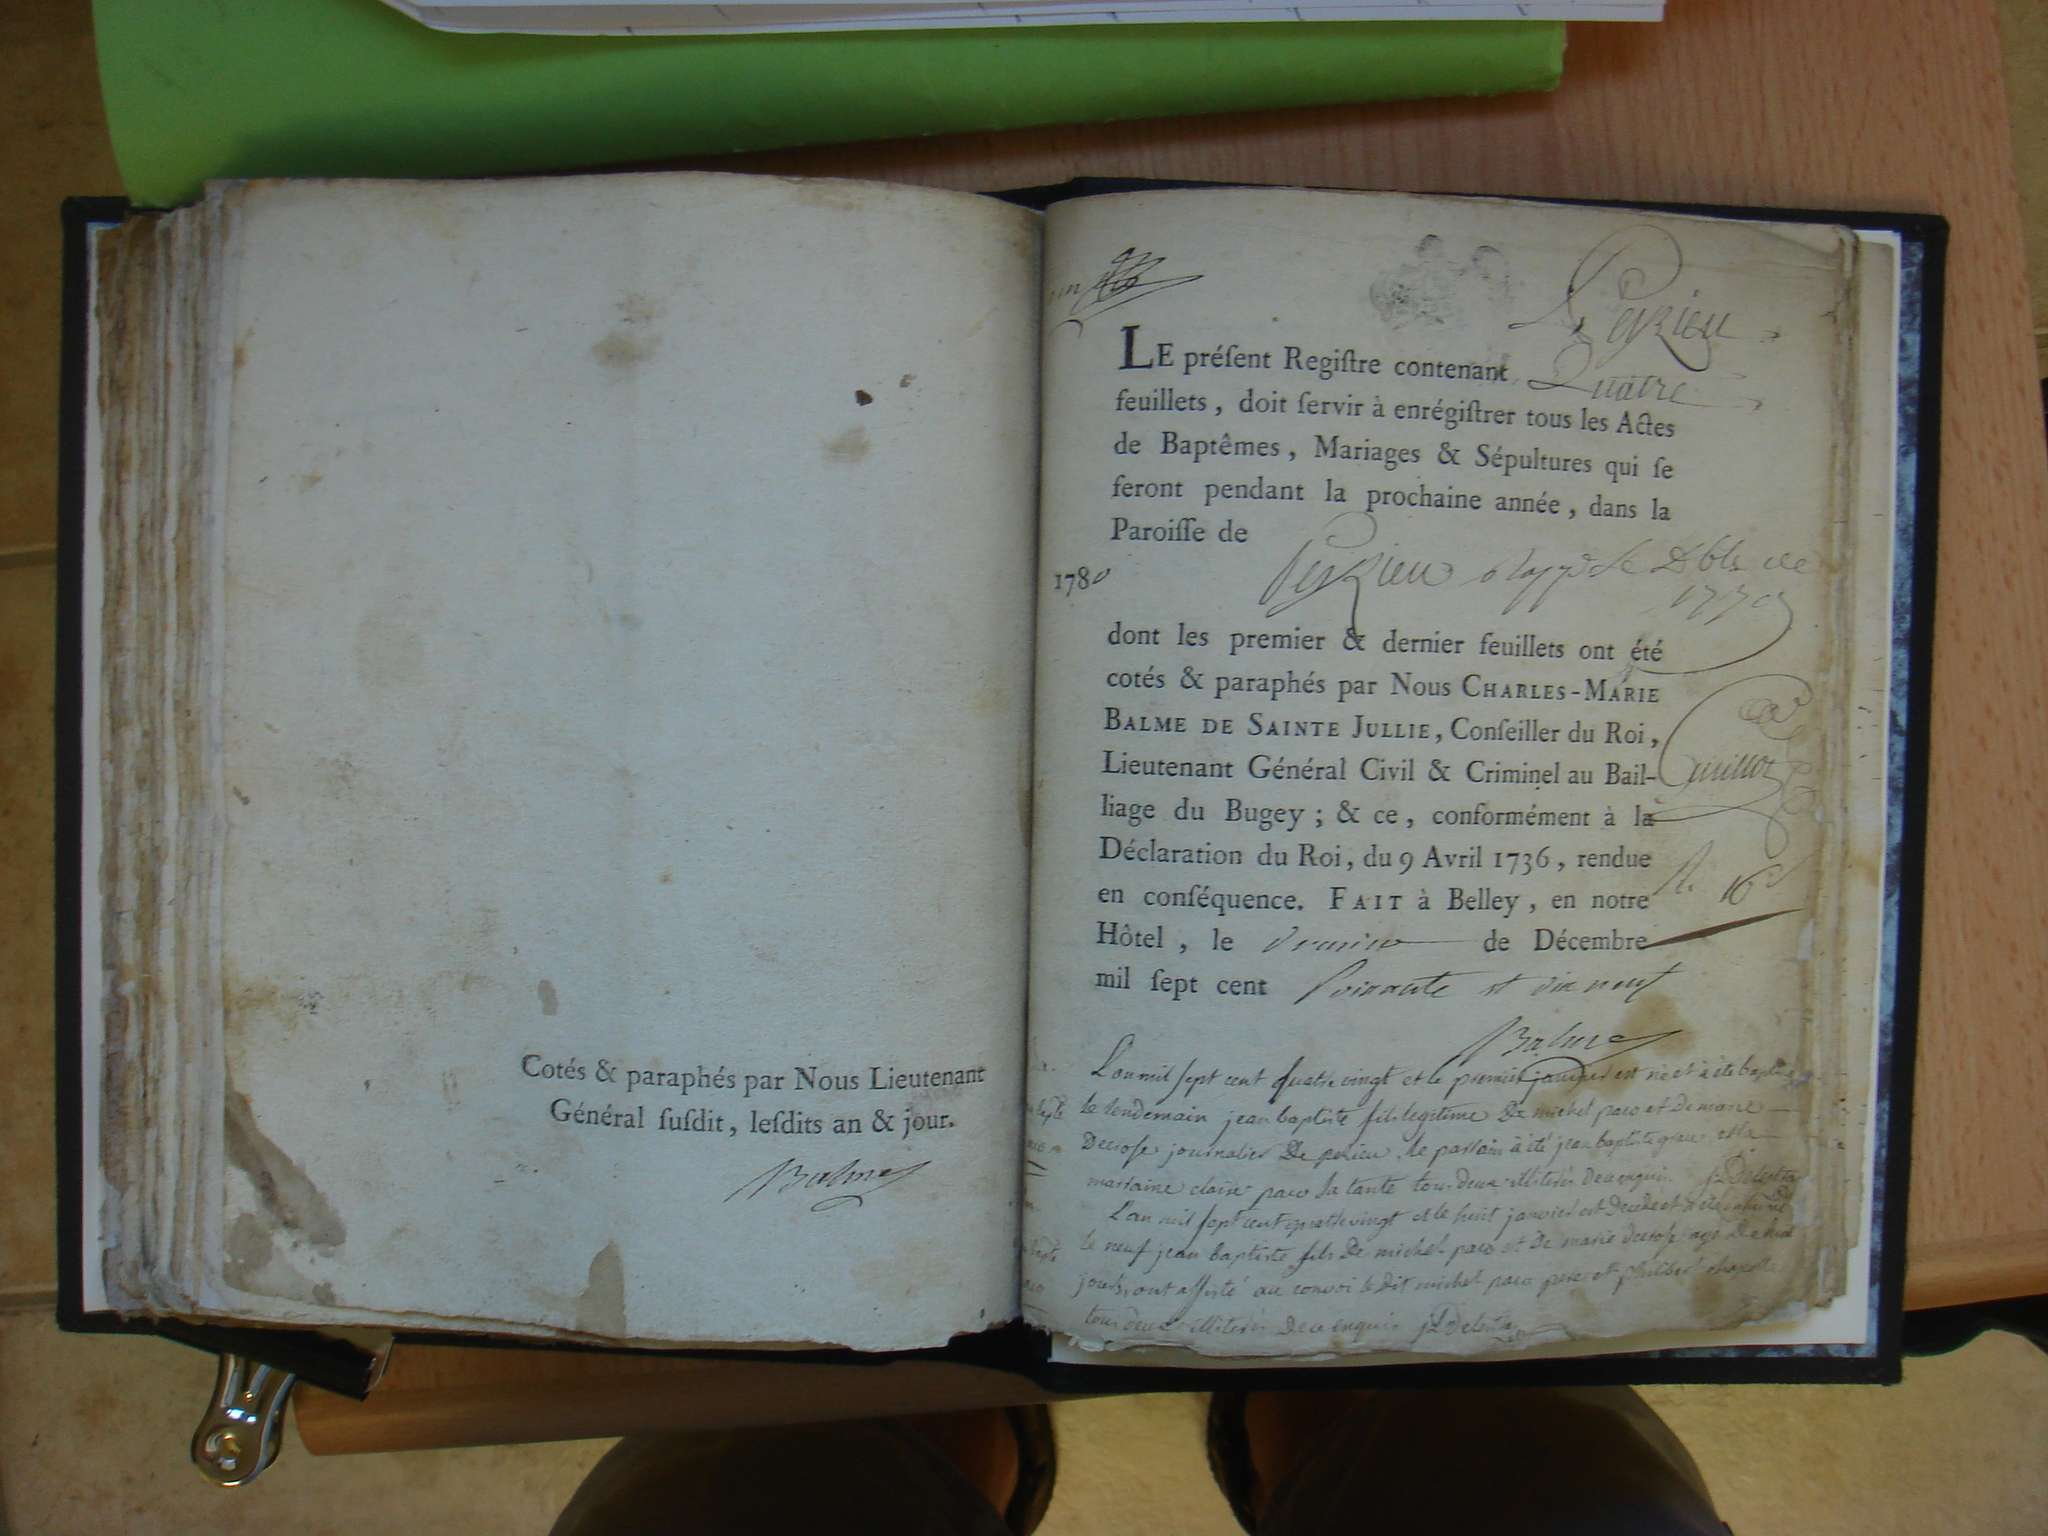 Cotés & paraphés par Nous Lieutenant
Général ſuſdit, leſdits an & jour.
Balme
Peyzieu
LE préſent Regiſtre contenant Quatre
feuillets, doit ſervir à enrégiſtrer tous les Actes
de Baptêmes, Mariages & Sépultures qui ſe
feront pendant la prochaine année, dans la
Paroiſſe de
1780
Peyzieu
dont les premier & dernier feuillets ont été
cotés & paraphés par Nous CHARLES-MARIE
BALME DE SAINTE JULLIE, Conſeiller du Roi,
Lieutenant Général Civil & Criminel au Bail-
liage du Bugey ; & ce, conformément à la
Déclaration du Roi, du 9 Avril 1736, rendue
en conſéquence. FAIT à Belley, en notre
Hôtel, le de Décembre
mil ſept cent soixante et dix neuf
Balme
L'an mil sept cent quatre vingt et le premier janvier est né et a été baptisé
le lendemain jean baptiste fils legitime de michel paco et de marie
Decrose journalier de pezieu le parrain a été jean baptiste et la
marraine claire paco sa tante tous deux illiterés de ce enquis
L'an mil sept cent quatre vingt et le huit janvier est decedé et a été
le neuf jean baptiste fils de michel paco et de marie decrose agé de huit
jours ont assisté au convoi le dit michel paco pere et philibert
tous deux illiterés de ce enquis